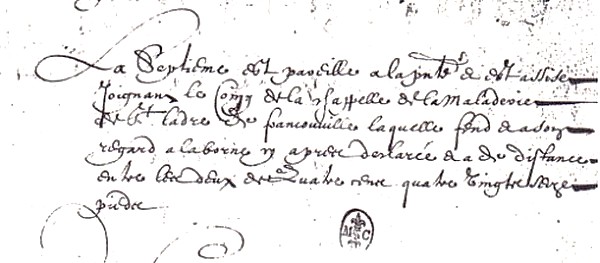 La Septiesme est pareille a la pnte & est assise
Joignant le Coing de la chappelle de la Maladerie
de St ladre de franconville laquelle fend a son
regard a la borne cy apres declarée & a de distance
entre les deux de Quatre cent quatre vingtz seize
piedz
M C